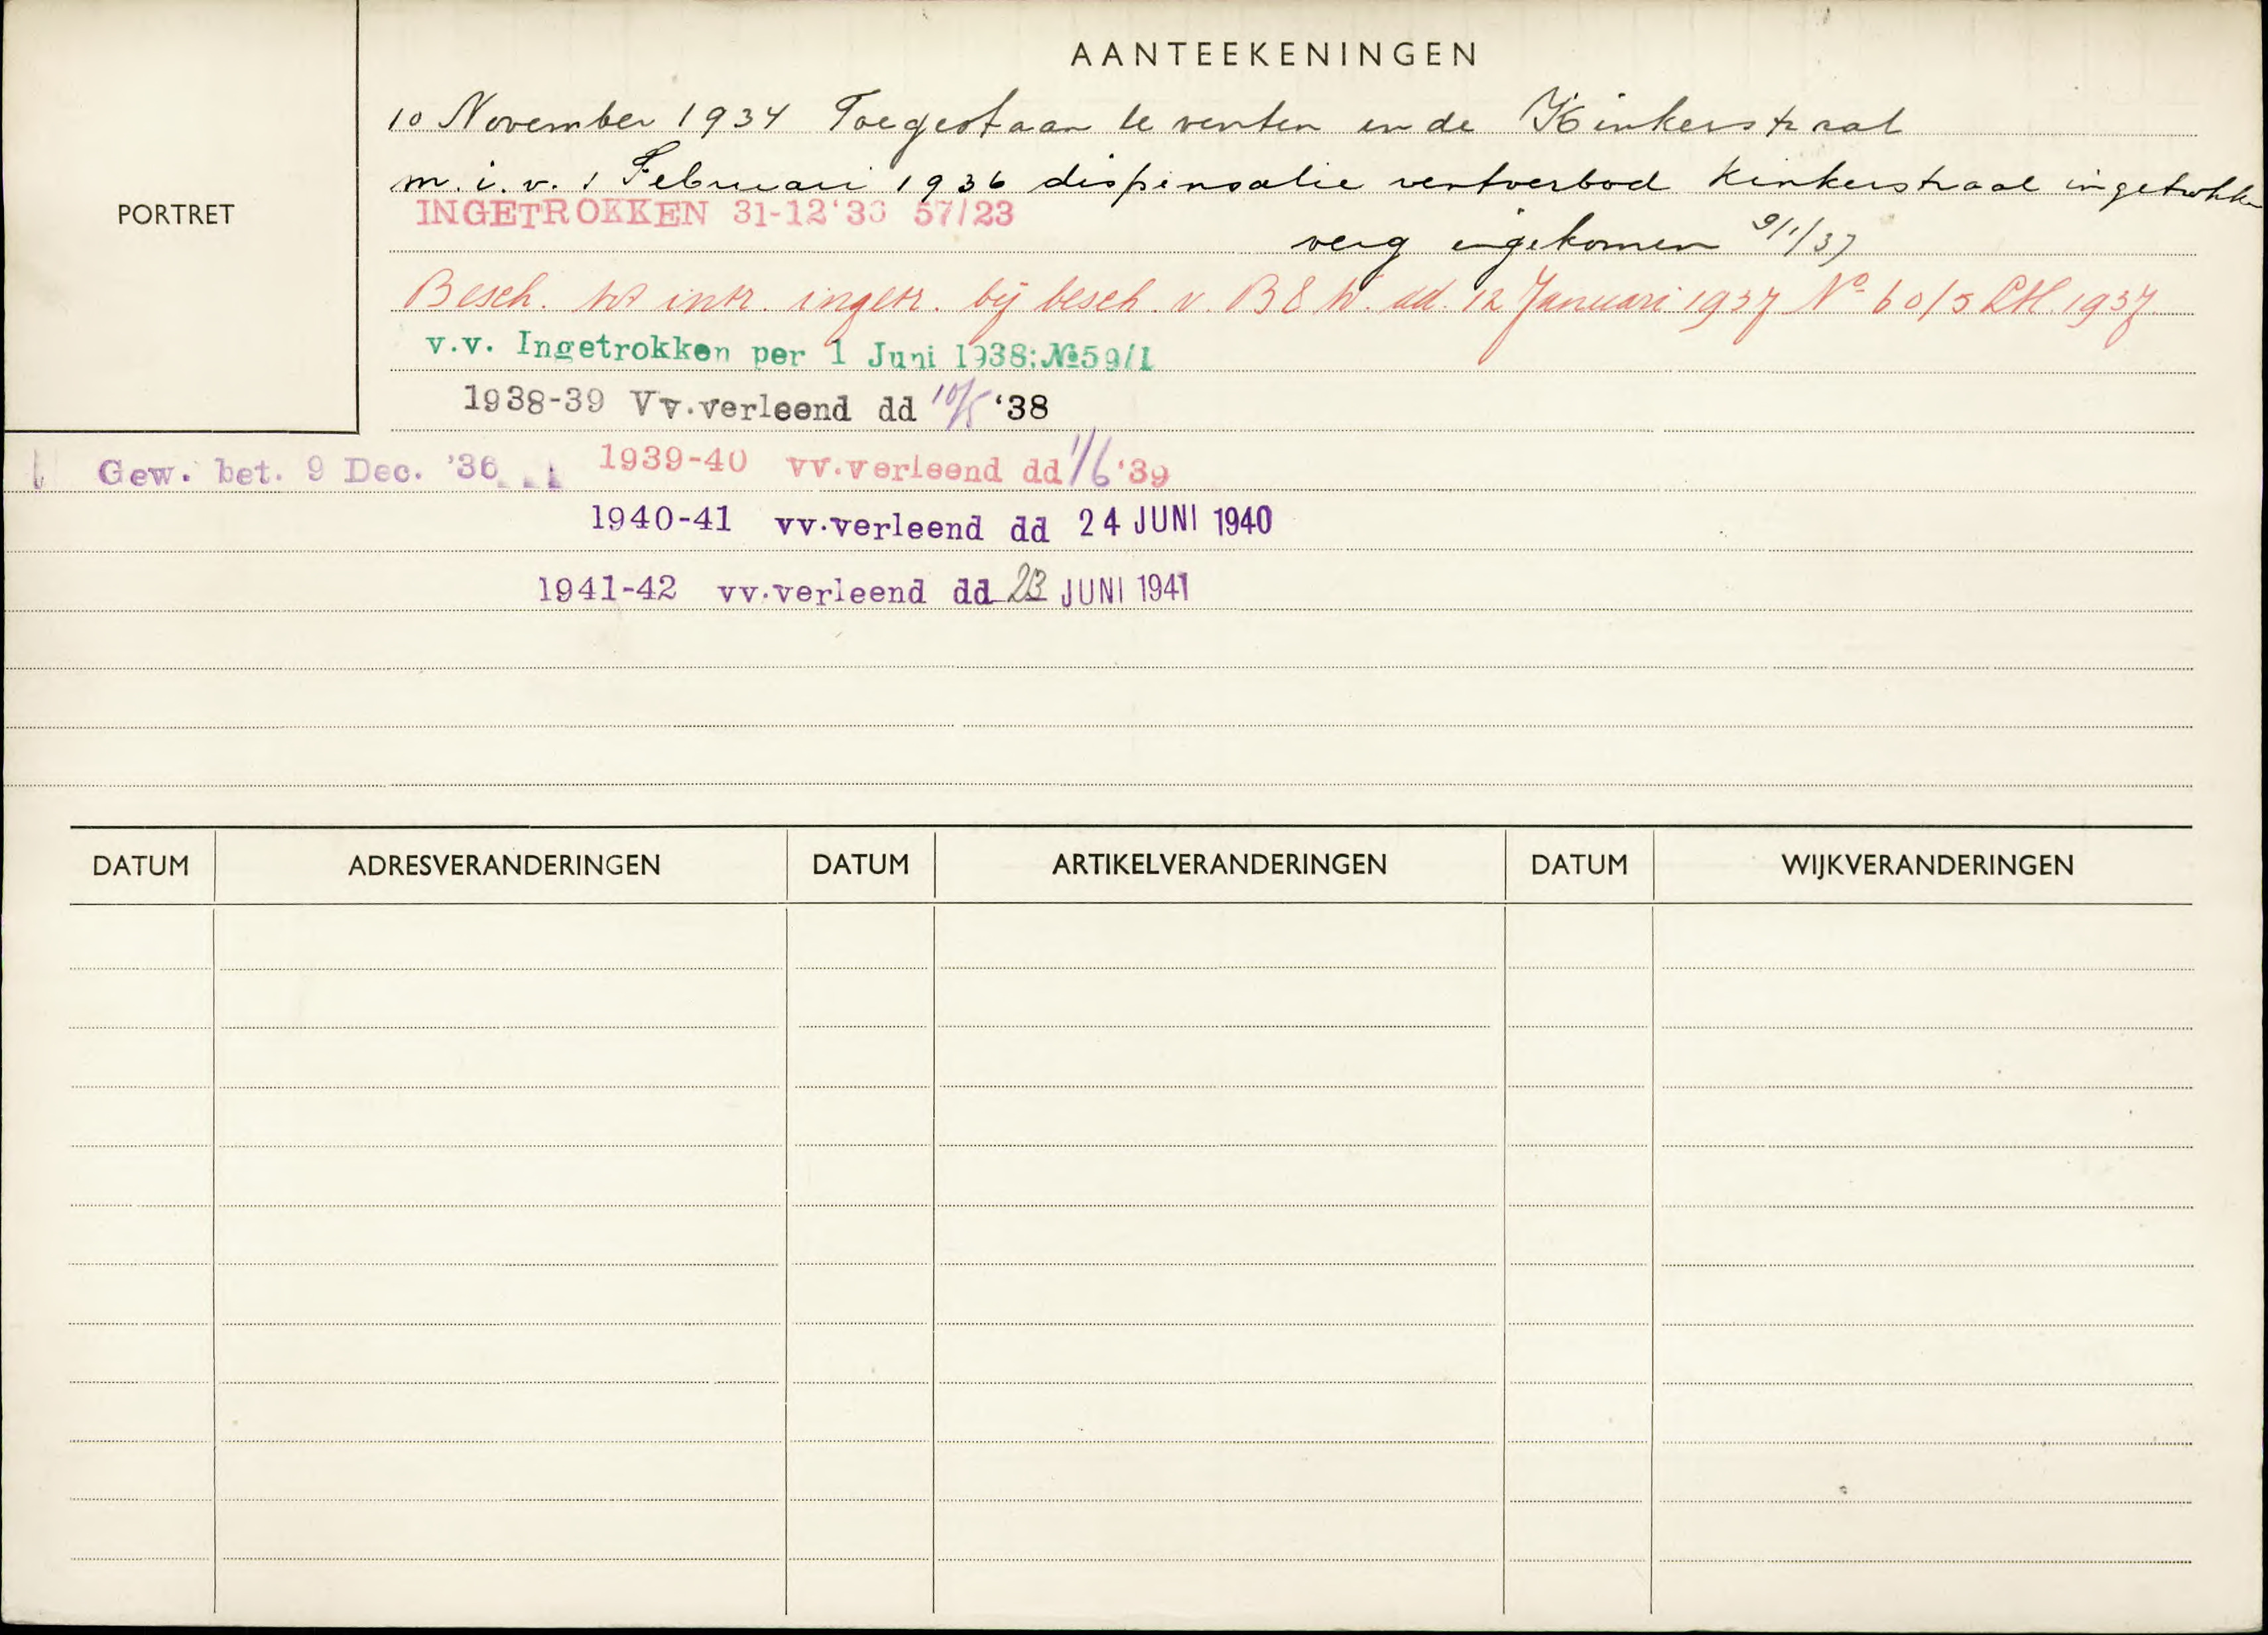 AANTEEKENINGEN
PORTRET
10 November 1934 Toegestaan te venten in de Kinkerstraat
m.i.v. 1 Februari 1936 dispensatie ventverbod Kinkerstraat ingetrokken
INGETROKKEN 31-12'36 57/23
verg ingekomen 9/1/37
Besch. tot intr. ingetr. bij besch. v. B & W. dd. 12 Januari 1937 No 60/5 LH. 1937.
v.v. Ingetrokken per 1 Juni 1938: No 59/1
1938-39 Vv.verleend dd 10/5 '38
Gew. bet. 9 Dec. '36 1939-40 vv.verleend dd 1/6 '39
1940-41 vv.verleend dd 24 JUNI 1940
1941-42 vv.verleend dd 23 JUNI 1941
DATUM ADRESVERANDERINGEN DATUM ARTIKELVERANDERINGEN DATUM WIJKVERANDERINGEN